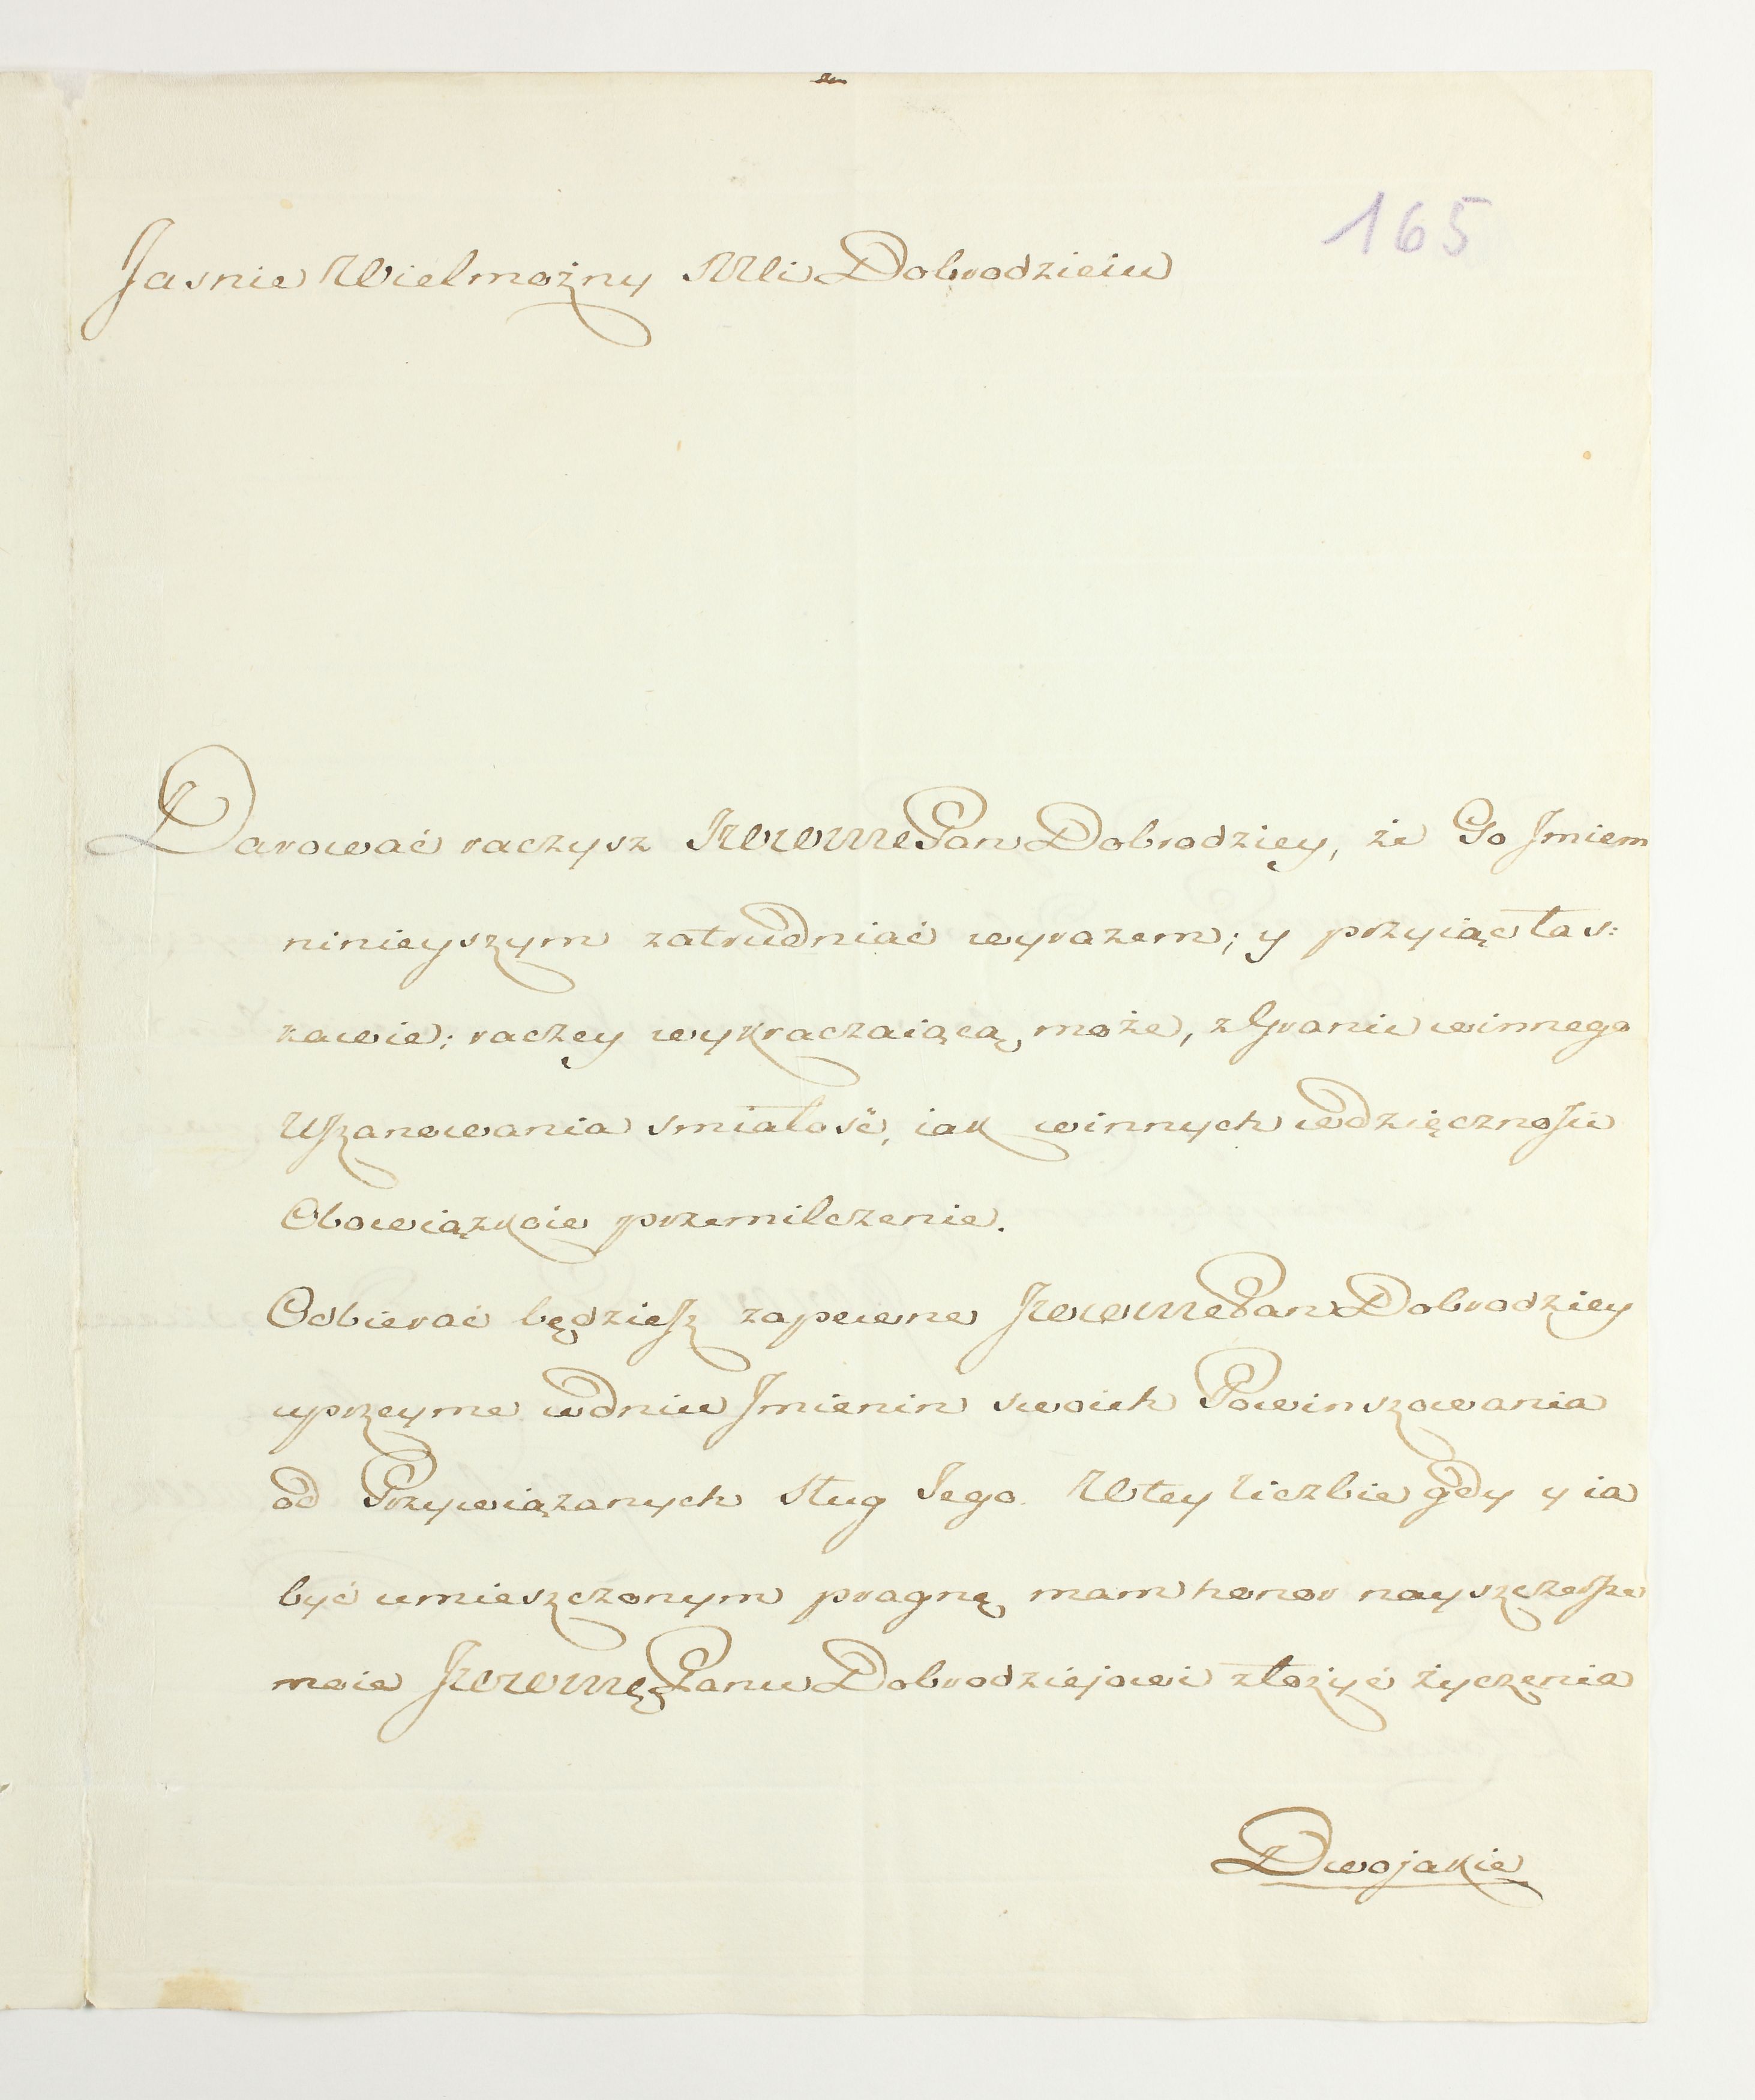 165
Jasnie Wielmożny Mci Dobrodzieiu
Darować raczysz JWWMPan Dobrodziey, że Go Jmiem
ninieyszym zatrudniać wyrazem; y przyiąć łas:
kawie; raczey wykraczaiącą może, z Granic winnego
Uszanowania smiałość, iak winnych wdzięcznosci
Obowiązkow przemilczenie.
Odbierać będziesz zapewne JWWMPan Dobrodziey
uprzeyme w dniu Jmienin swoich Powinszowania
od Przywiązanych sług Jego. W tey liczbie gdy y ia
być umieszczonym pragnę mam honor nayszczersze
moie Panu Dobrodziejowi złożyć życzenia
Dwojakie